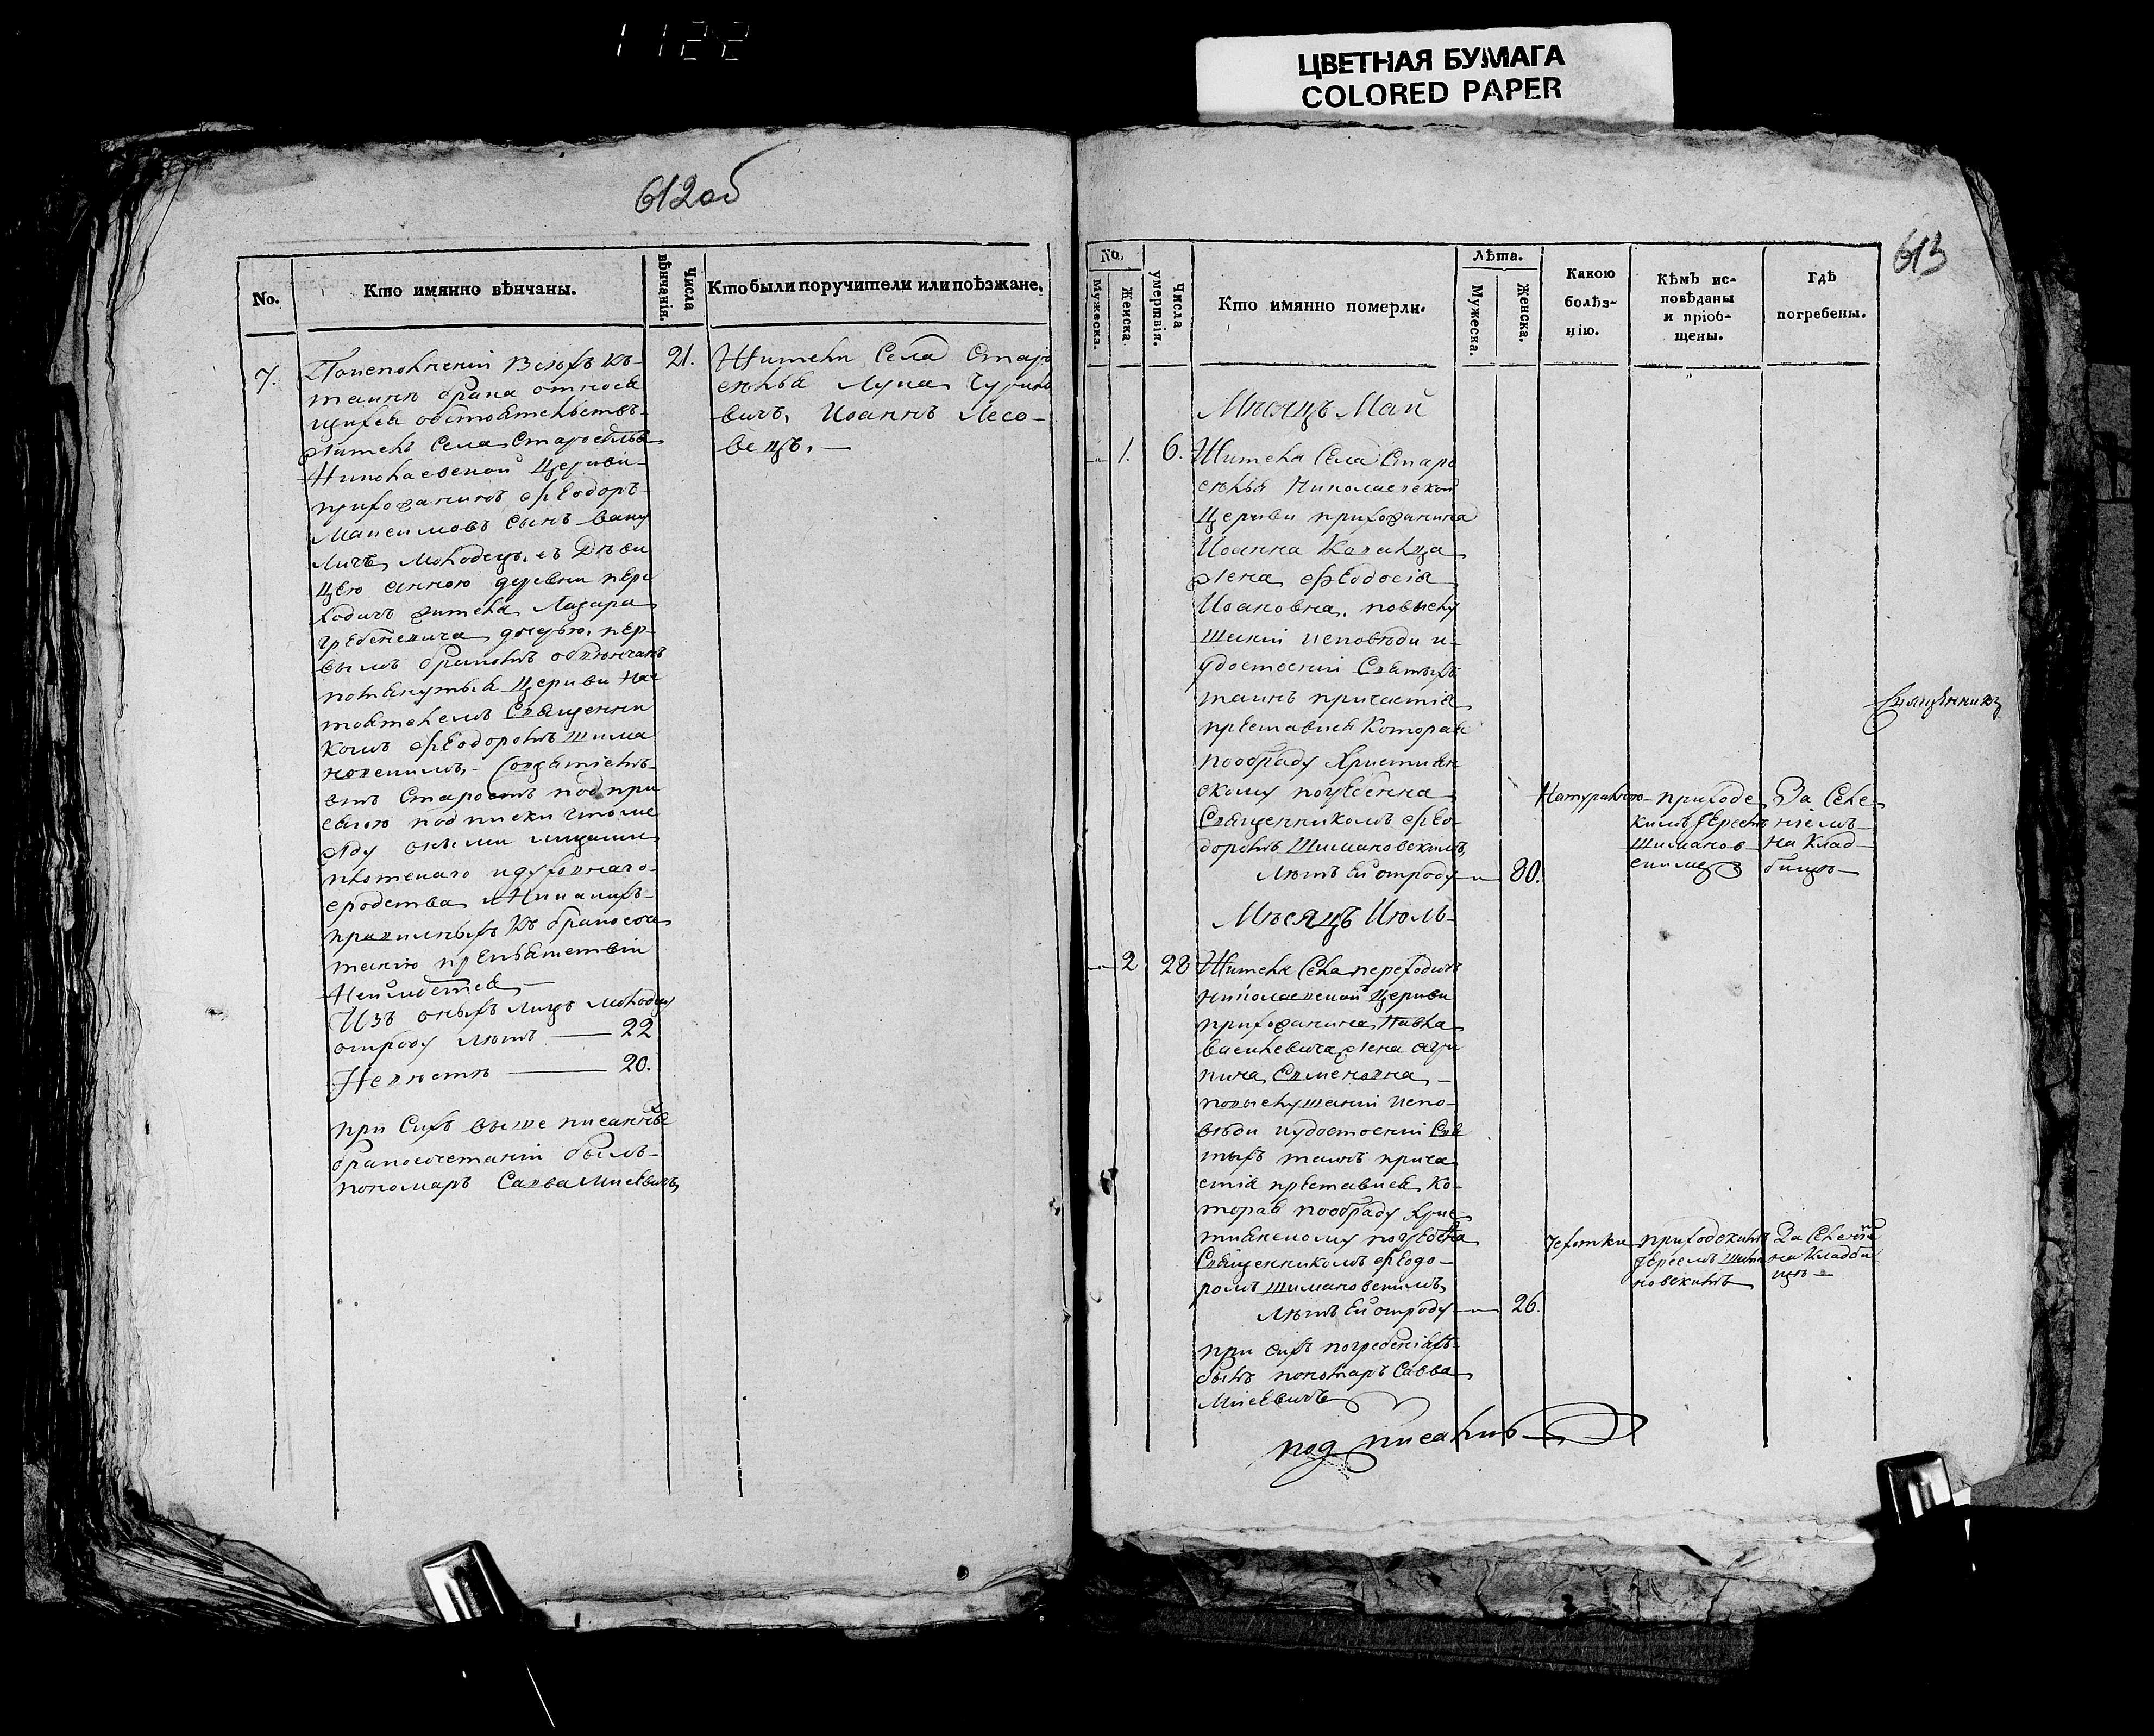 1122
ЦВЕТНАЯ БУМАГА
COLORED PAPER
612об
No.
Кто имянно вѣнчаны.
Числа вѣнчанія.
Кто были поручители или поѣзжане.
7.
По исполненіи всѣхъ къ
таинѣ брака относя
щихся обстоятельствъ
житель Села Староселья
Николаевской Церкви
прихожанинъ Ѳеодоръ
Максимовъ сынъ Ваку
личъ молодецъ, съ дѣви
цею Анною деревни пере
ходичъ жителя Лазара
Гребеневича дочерью, пер-
вымъ бракомъ обвѣнчанъ
помянутыя Церкви нас
тоятелемъ Священни
комъ Ѳеодоромъ Шима
новскимъ,
подпри
сяжною подписки что ме
жду оними лицами
плотскаго и духовнаго
сродства и никакихъ
правилныхъ къ бракосоче
танію препятствій
неимѣется
Изъ оныхъ лицъ молодцу
отроду лѣтъ — 22
Невѣстѣ — 20.
при сихъ выше писанныхъ
бракосочетаніи былъ
пономаръ Савва Мисѣвичъ
21.
Жители Села Старо
селья Лука
вичъ, Иоаннъ Лесо-
вецъ. —
613
No.
Мужеска.
Женска
Числа умертвія.
Кто имянно померли.
Лѣта.
Мужеска.
Женска.
Какою
болѣз-
нію.
Кѣмъ ис-
повѣданы
и пріоб-
щены.
Гдѣ
погребены.
Мѣсяцъ Май
1.
6.
Жителя Села Старо
селья Николаевской
Церкви прихожанина
Иоанна
жена Ѳеодосія
Иоановна, повыслу
шаніи исповѣди и
удостоеніи Святыхъ
таинъ причастія
преставися которая
пообряду Христиан
скому погребенна
Священникомъ Ѳео-
доромъ Шимановскимъ,
Лѣтъ ей отроду —
80.
Натуралною
приходс
кимъ Іереемъ
Шиманов
скимъ
За Селе
ніемъ
на клад
бищѣ
Священникъ
Мѣсяцъ Июль
2
28
Жителя Села переходичъ
Николаевской Церкви
прихожанина Павла
Василевича жена Агри
пина Семеновна
повыслушаніи испо-
вѣди и удостоеніи Свя
тыхъ таинъ прича
стія преставися ко-
торая пообряду Хрис
тианскому погребена
Священникомъ Ѳеодо-
ромъ Шимановскимъ,
Лѣтъ ей отроду —
26.
чехотки
приходскимъ
Іереемъ Шима
новскимъ
За Селеніемъ
на кладби
щѣ —
при сихъ погребеніяхъ
былъ пономаръ Савва
Мисѣвичъ
подписалъ